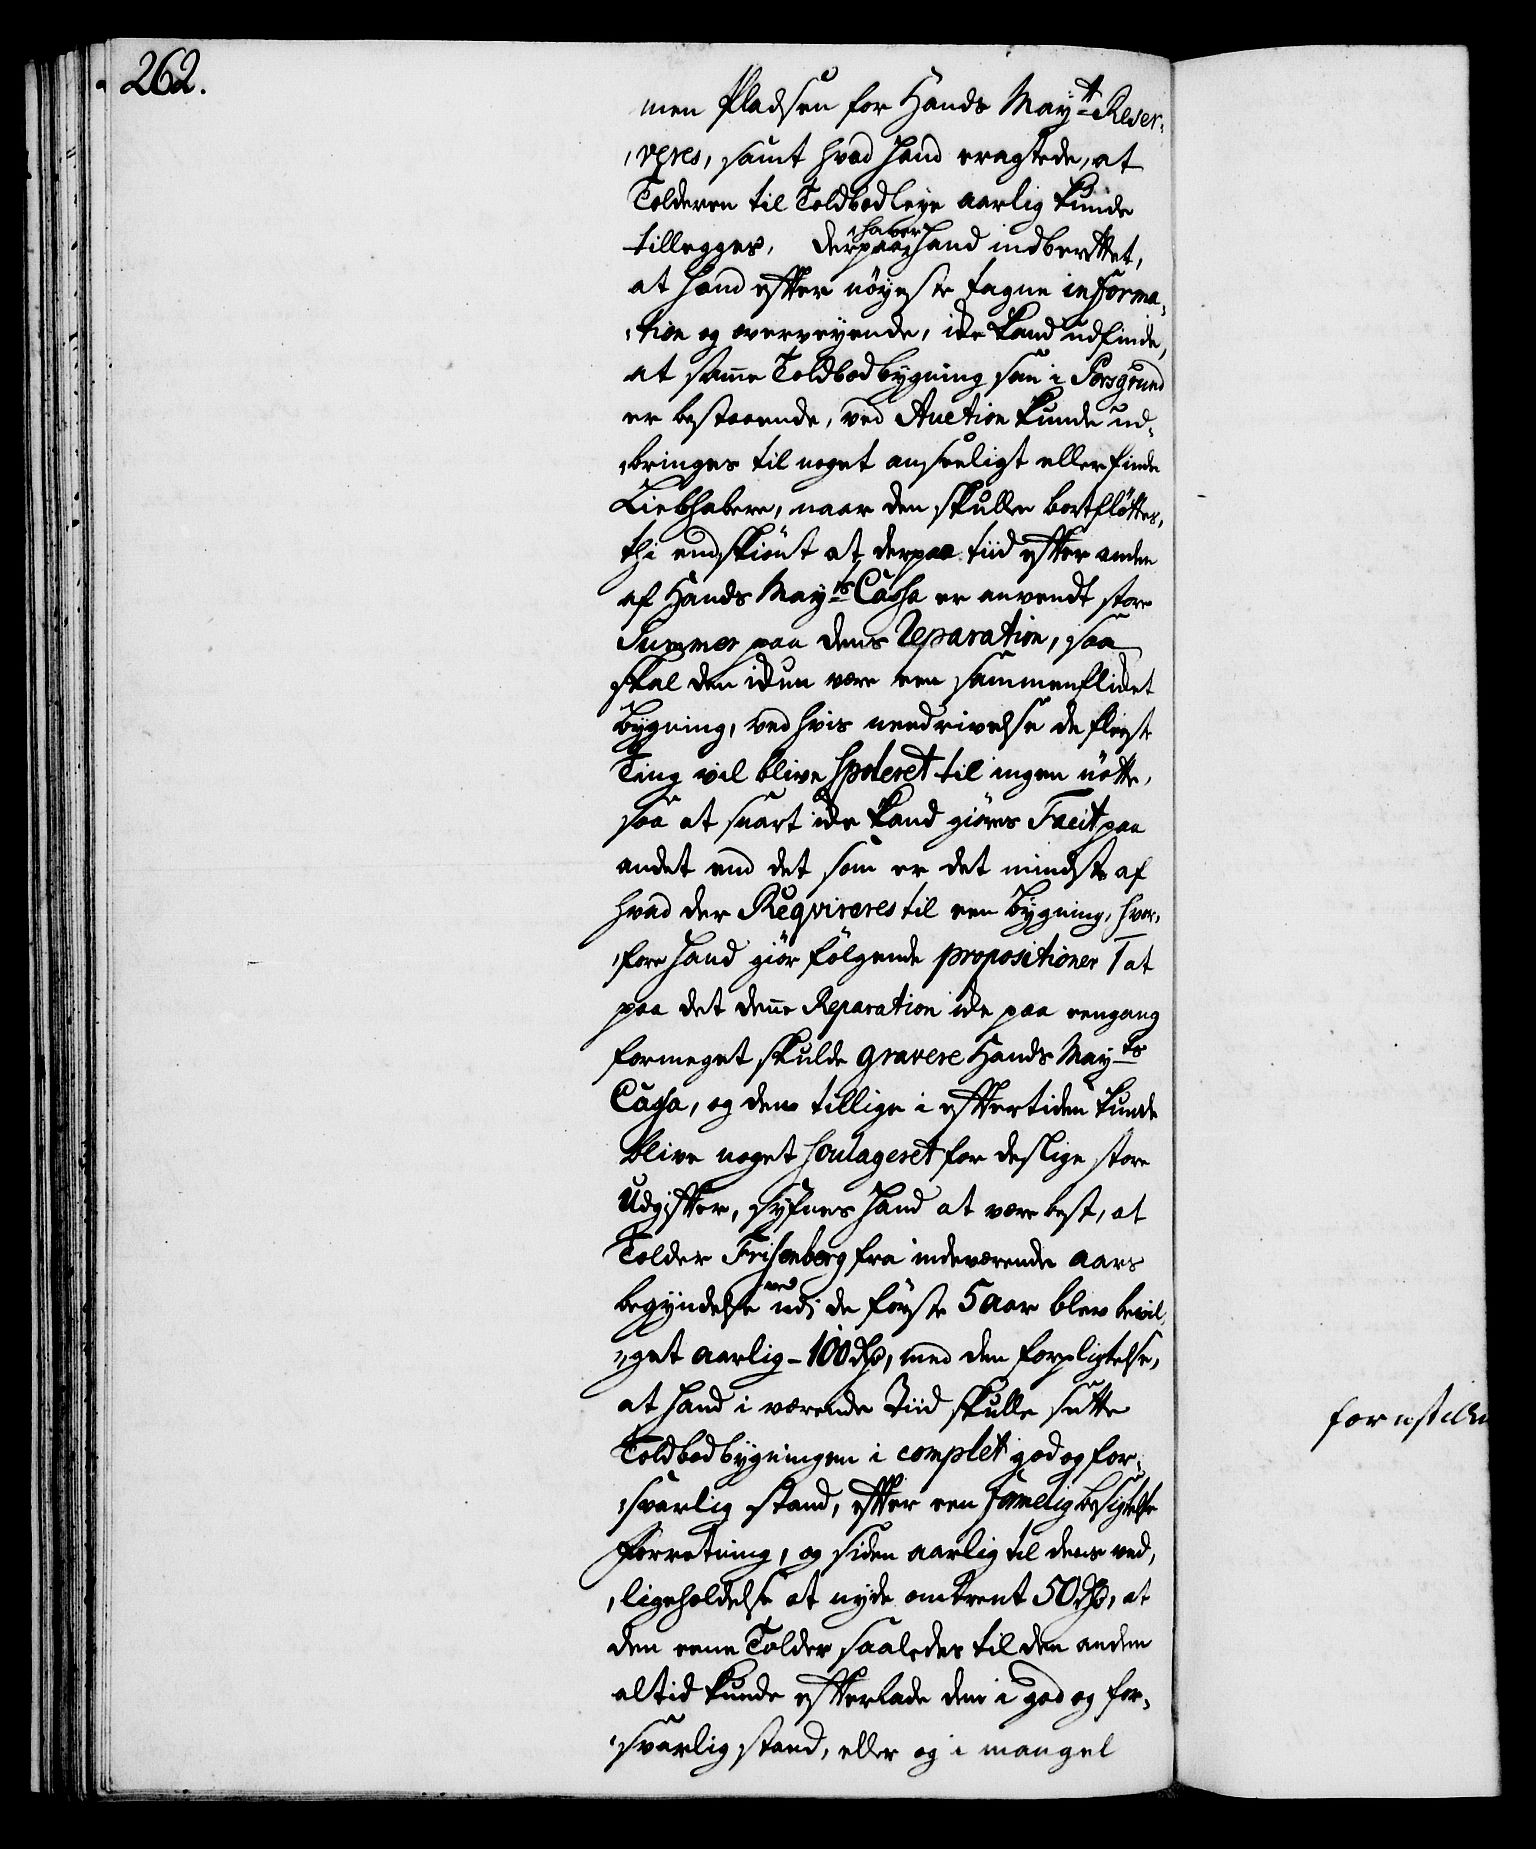 262.
men Pladsen for Hands Mayt Reser-
veres, samt hvad Hand eragtede, at
Tolderen til Toldbodleye aarlig kunde
tillegges, derpaa haver Hand indberettet,
at Hand efter nöyeste tagne informa-
tion og overveyende, icke kand udfinde,
at samme Toldbodbygning som i Porsgrund
er bestaaende, ved Auction kunde ud-
bringes til noget anseeligt eller finde
Liebhabere, naar den skulle bortfløttes,
thi endskiönt at derpaa tiid efter anden
af Hands Mayts Cassa er anvendt store
Summer paa dens Reparation, saa
skal den icke være een sammenflicket
bygning, ved hvis needrivelse de fleeste
Ting vil blive spoleret til ingen nötte,
saa at snart icke kand giöres Facit paa
andet end det som er det mindste af
hvad der Reqvireres til een bygning, hvor-
fore Hand giör fölgende propositioner 1 at
paa det denne Reparation icke paa eengang
formeget skulde gravere Hands Mayts
Cassa, og den tillige i eftertiden kunde
blive noget soulageret for deslige store
Udgifter, syfnes Hand at være best, at
Tolder Frisenberg fra indeværende aars
begyndelse udi de förste 5 aar blev bevil-
get aarlig - 100 Rd, med den forpligtelse,
at Hand i værende Tiid skulle sette
Toldbodbygningen i complet god og for-
svarlig stand, efter een besigtelse
forretning, og siden aarlig til dens ved-
ligeholdelse at nyde omtrent 50 Rd, at
den eene Tolder saaledes til den anden
altid kunde efterlade den i god og for-
svarlig stand, eller og i mangel